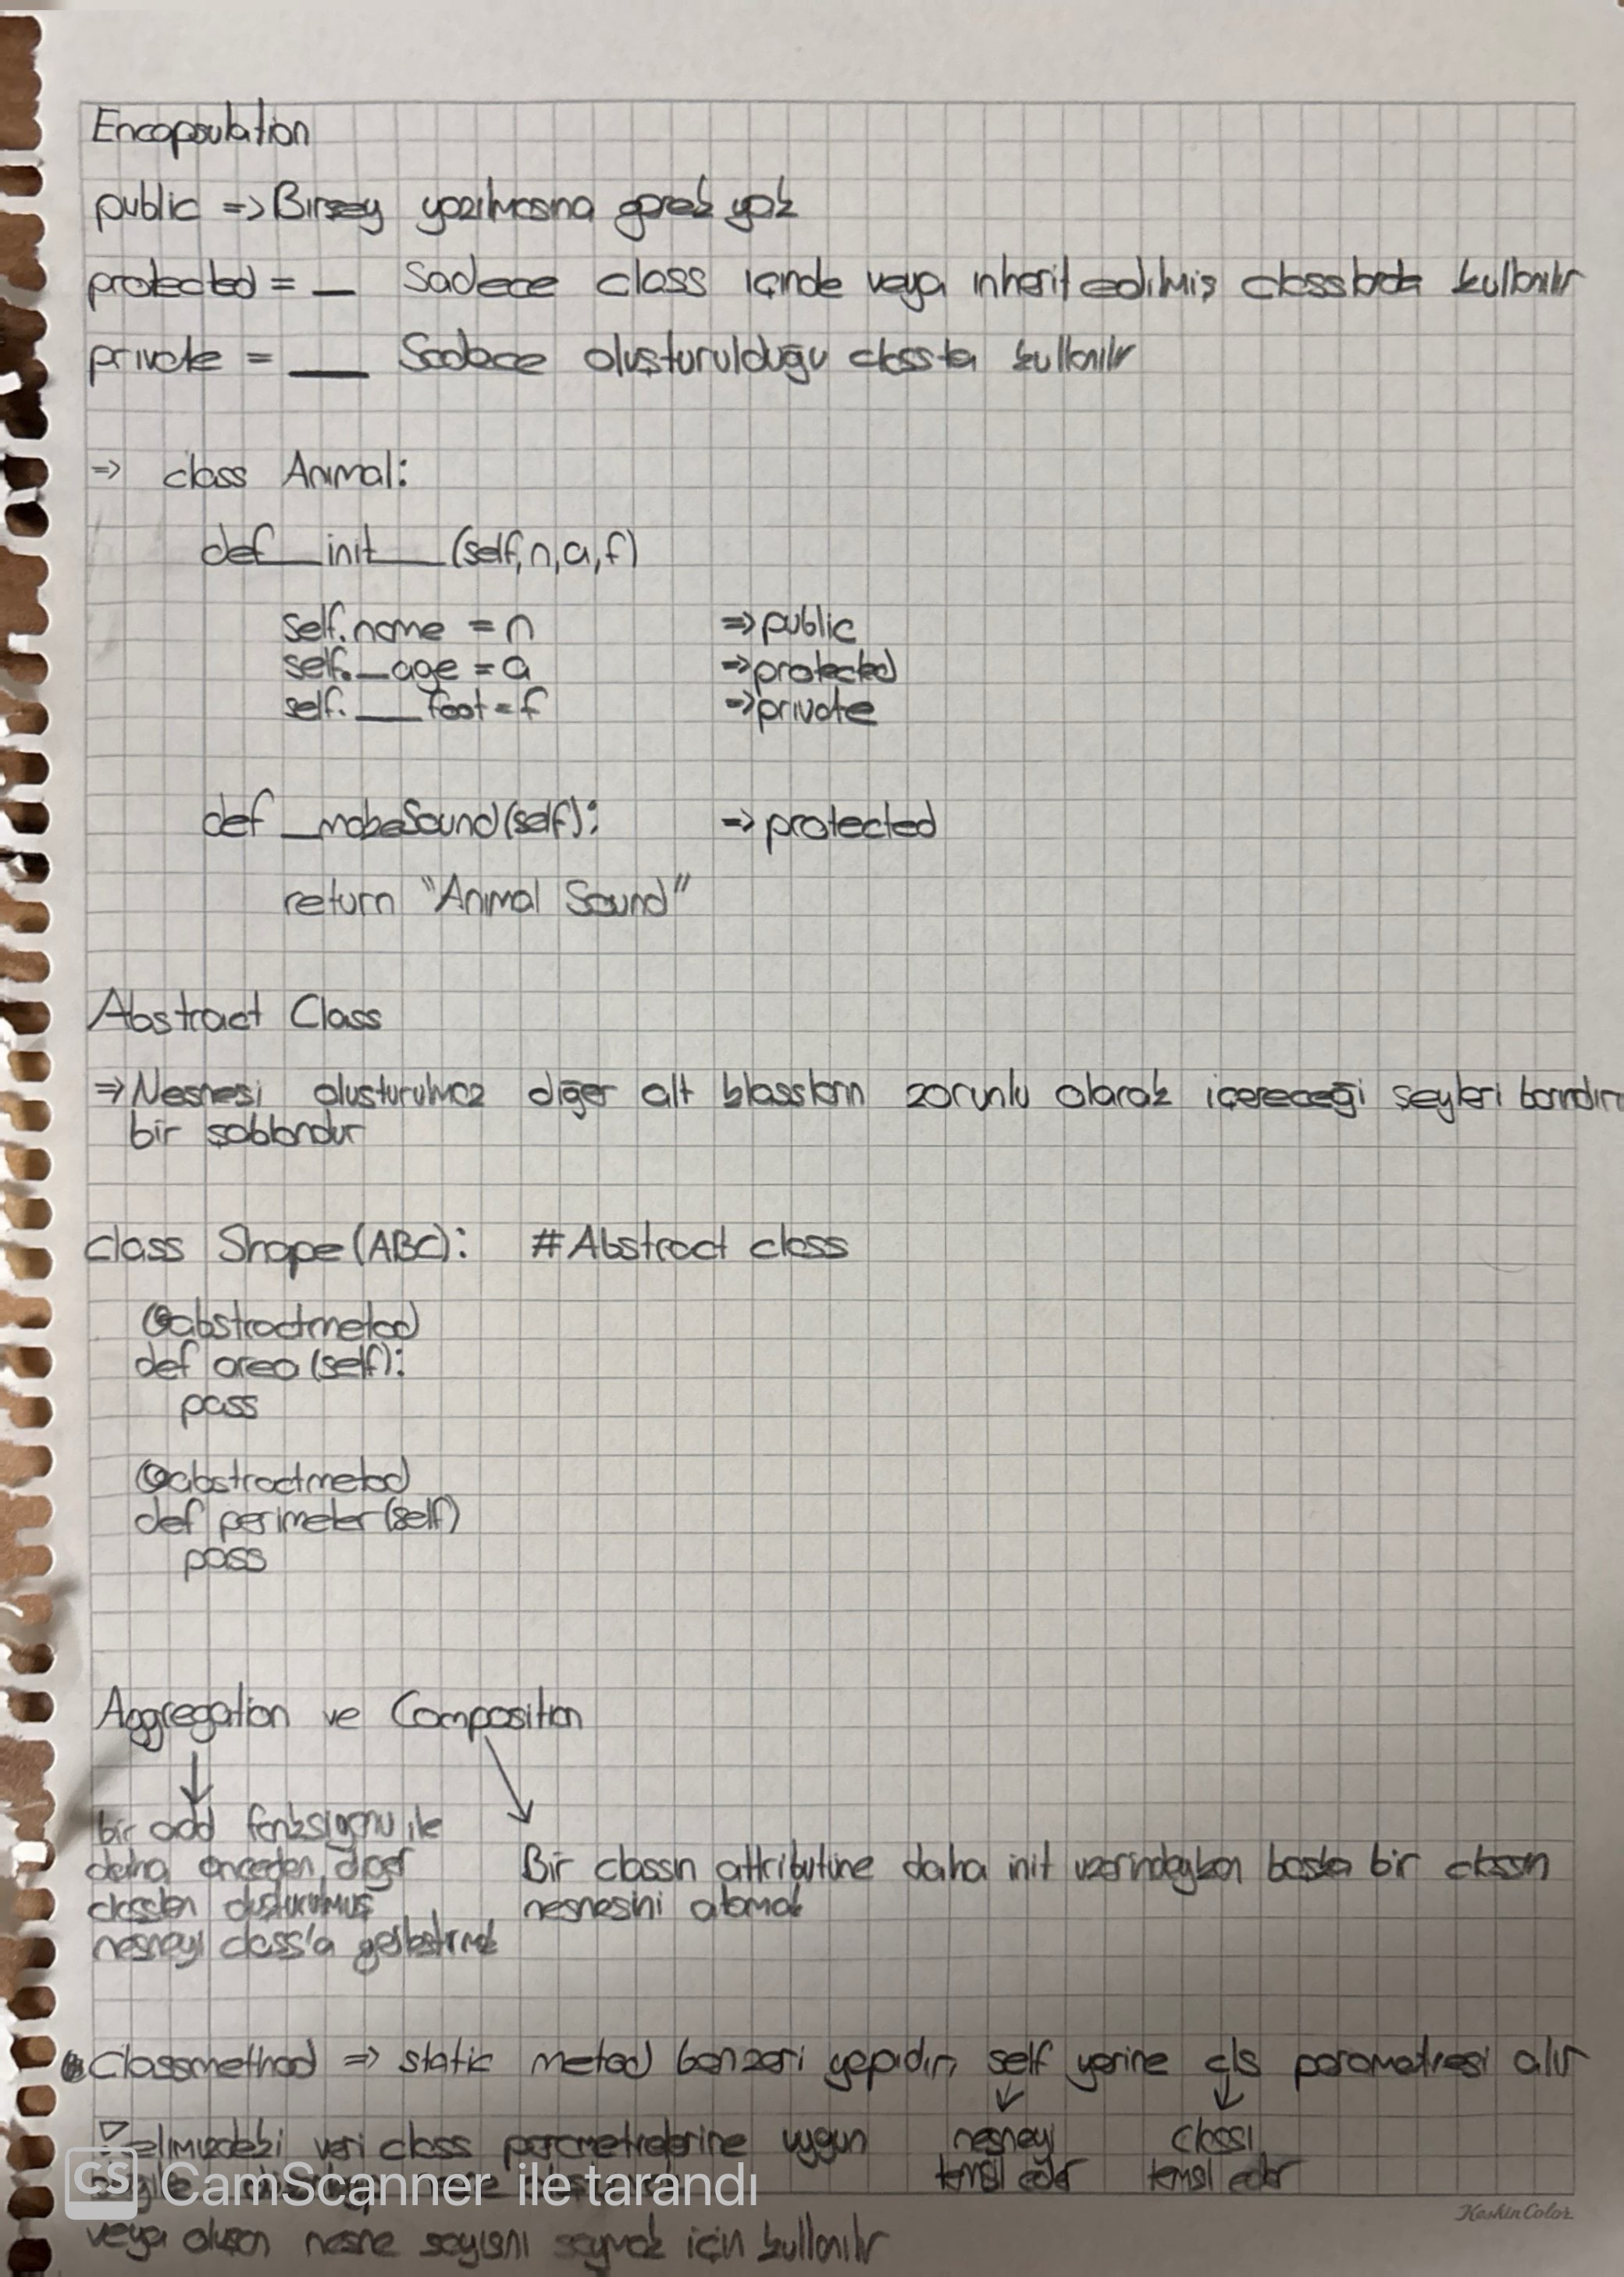 Encapsulation
public => Birşey yazılmasına gerek yok
protected = _ Sadece class içinde veya inherit edilmiş classlarda kullanılır
private = __ Sadece oluşturulduğu classta kullanılır
=> class Animal:
def __init__ (self,n,a,f)
self.name = n => public
self._age = a => protected
self.__foot = f => private
def _makeSound(self): => protected
return "Animal Sound"
Abstract Class
=> Nesnesi oluşturulmaz diğer alt klassların zorunlu olarak içereceği şeyleri barındıran
bir şablondur
class Shape(ABC): #Abstract class
@abstractmetod
def area (self):
pass
@abstractmetod
def perimeter(self)
pass
Aggregation ve Composition
bir add fonksiyonu ile
daha önceden diğer
classtan oluşturulmuş
nesneyi class'a yerleştirmek
Bir classın attributüne daha init üzerindeyken başka bir classın
nesnesini atamak
Classmethod => static metod benzeri yapıdır, self yerine cls parametresi alır
elimizdeki veri class parametrelerine uygun nesneyi classı
temsil eder temsil eder
CS CamScanner ile tarandı
KeskinColor
veya oluşan nesne sayısını saymak için kullanılır